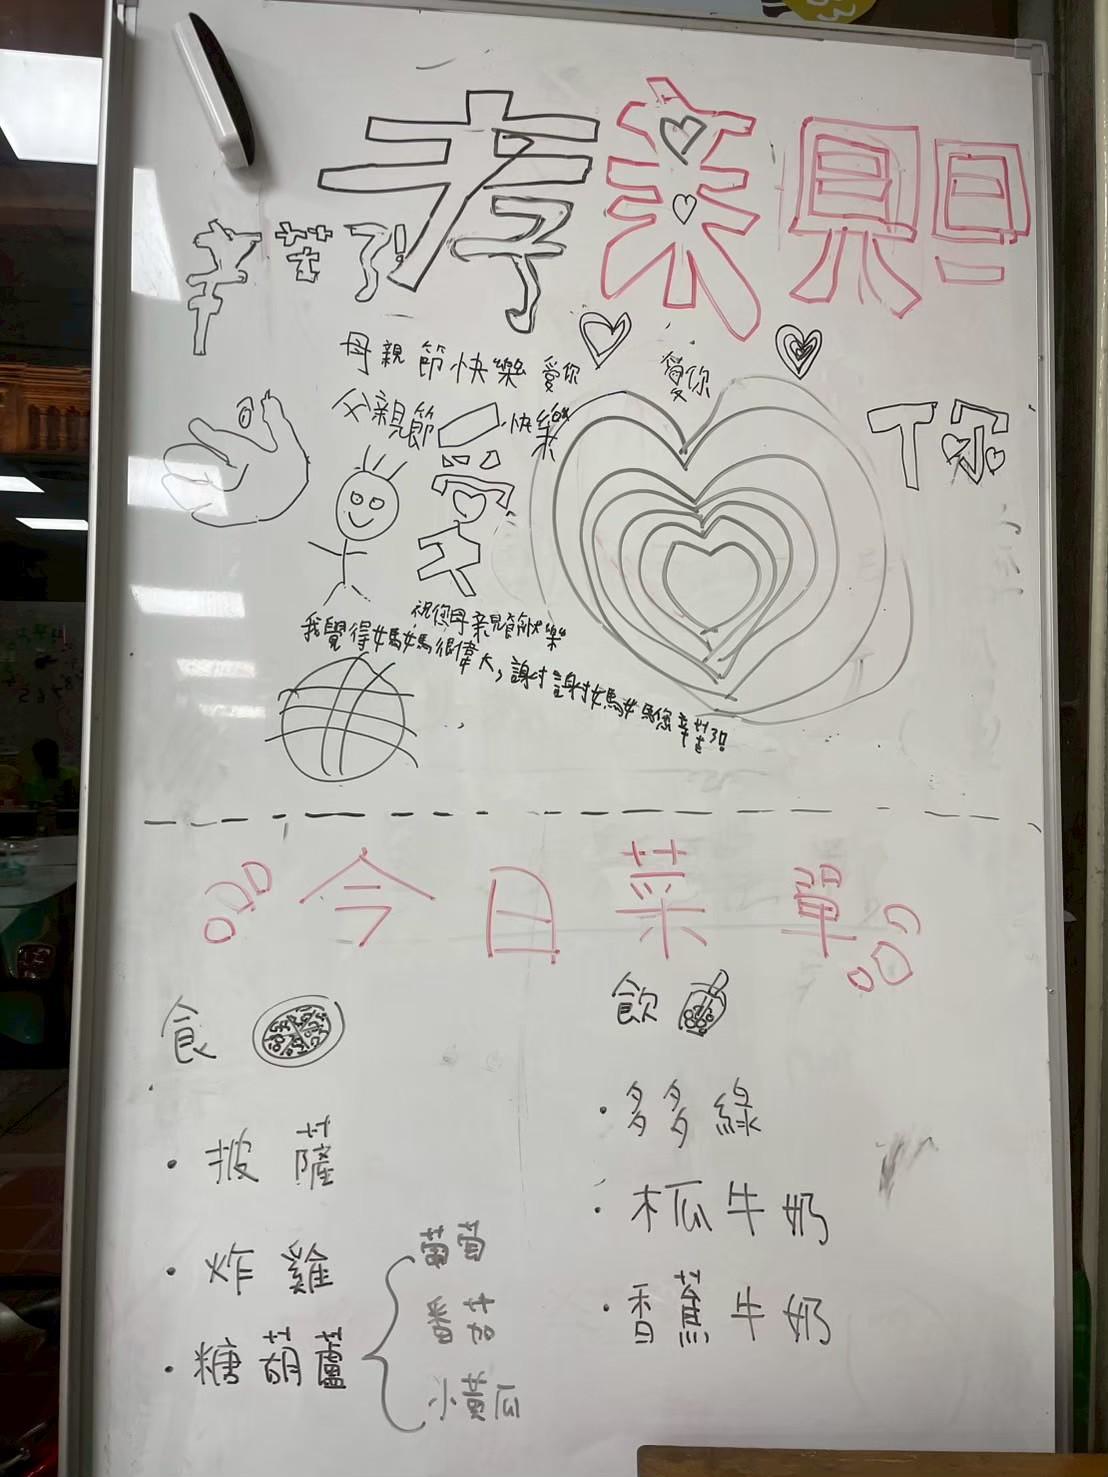 孝親日
辛苦了!
母親節快樂 愛你
愛你
父親節 快樂
愛
你
祝您母親節快樂
我覺得媽媽很偉大,謝謝媽媽您辛苦了!
今日菜單
食
飲
披薩
炸雞
糖葫蘆
葡萄
番茄
小黃瓜
多多綠
木瓜牛奶
香蕉牛奶